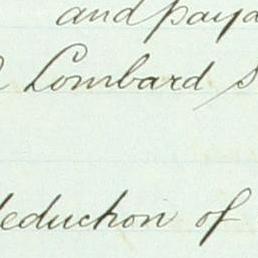 and paya
Lombard S
deduction of